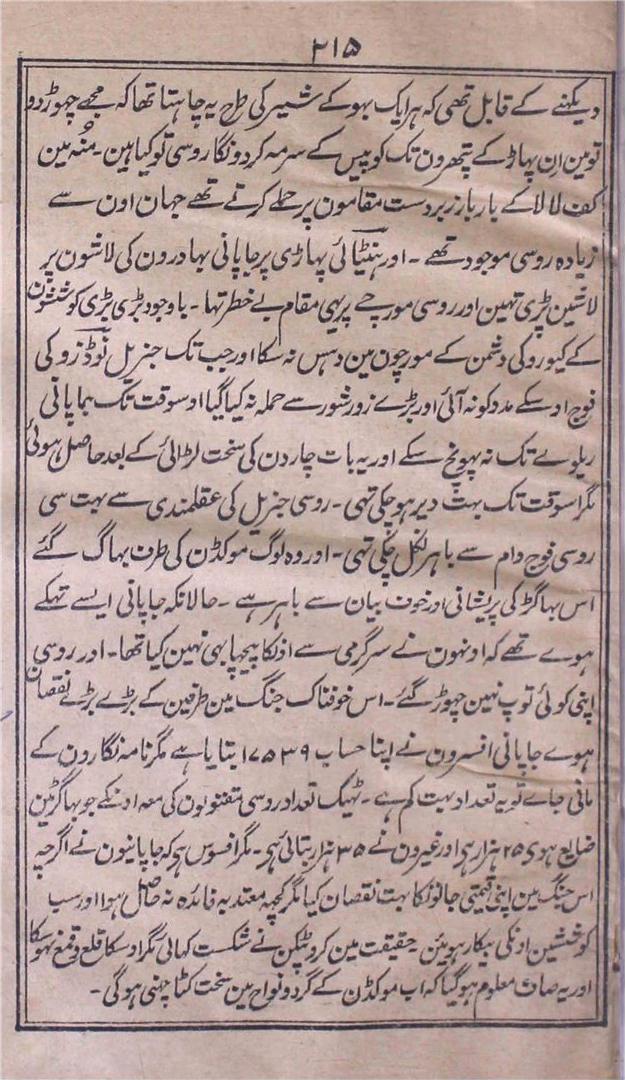 ۲۱۵
دیکہنے کے قابل تھی کہ ہر ایک بہوکے شیر کی طرح یہ چاہتا تھا کہ مجھے چہوڑ دو
تو مین اِن پہاڑ کے پتھرون تک کو پیس کے سرمہ کر دونگا روسی تو کیا ہین ۔ مُنہ مین
کف لا لا کے بار بار زبردست مقامون پر حملے کرتے تھے جہان اون سے
زیادہ روسی موجود تھے ۔ اور ہنٹیائی پہاڑی پر جاپانی بہادرون کی لاشون پر
لاشین پڑی تہین اور روسی مورچے پر یہی مقام بے خطر تہا ۔ باوجود بڑی بڑی کوششون
کے کیورو کی دشمن کے مورچون مین دہس نہ سکا اور جب تک جنریل نوڈزو کی
فوج اوسکے مدد کو نہ آئی اور بڑے زور شور سے حملہ نہ کیا گیا اوسوقت تک جاپانی
ریلوے تک نہ پہونچ سکے اور یہ بات چار دن کی سخت لڑائی کے بعد حاصل ہوئی
مگر اسوقت تک بہت دیر ہو چکی تہی ۔ روسی جنریل کی عقلمندی سے بہت سی
روسی فوج دام سے باہر نکل چکی تہی ۔ اور وہ لوگ موکڈن کی طرف بہاگ گئے
اس بہاگڑ کی پریشانی اور خوف بیان سے باہر ہے ۔ حالانکہ جاپانی ایسے تہکے
ہوے تھے کہ اونہون نے سرگرمی سے اونکا پیچہا بہی نہین کیا تھا ۔ اور روسی
اپنی کوئی توپ نہین چہوڑ گئے ۔ اس خوفناک جنگ مین طرفین کے بڑے بڑے نقصان
ہوے جاپانی افسرون نے اپنا حساب ۱۷۵۳۹ بتایا ہے مگر نامہ نگارون کے
مانی جاے تو یہ تعداد بہت کم ہے ۔ ٹہیک تعداد روسی مقتولون کی معہ اونکے جو بہاگڑ مین
ضایع ہوی ۲۵ ہزار ہی اور غیرون نے ۳۵ ہزار بتائی ہی ۔ مگر افسوس ہی کہ جاپانیون نے اگرچہ
اس جنگ مین اپنی قیمتی جانونکا بہت نقصان کیا مگر کچہہ معتدبہ فائدہ نہ حاصل ہوا اور سب
کوششین اونکی بیکار ہوئین ۔ حقیقت مین کروپٹکن نے شکست کہائی مگر اوسکا قلع و قمع نہوسکا
اور یہ صاف معلوم ہو گیا کہ اب موکڈن کے گرد و نواح مین سخت کٹا چہنی ہو گی ۔